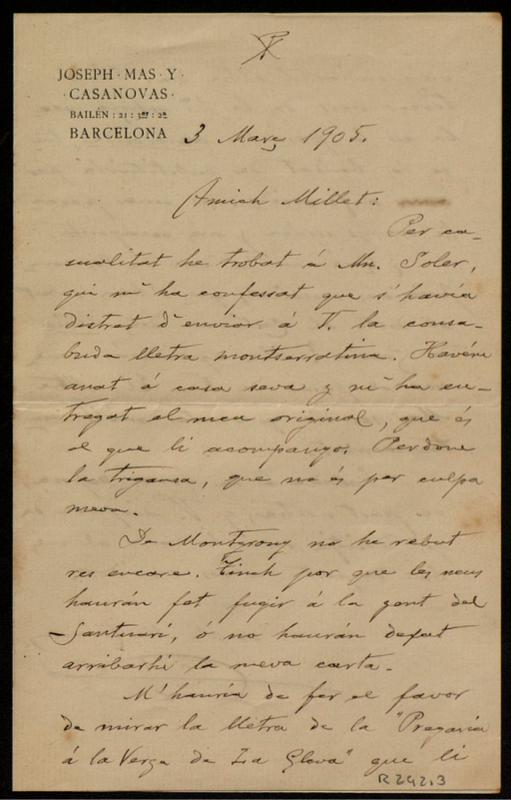 JOSEPH · MAS · Y ·
· CASANOVAS ·
BAILÉN : 21 : 3er : 2a
BARCELONA
3 Mars 1905.
Amich Millet:
Per ca-
sualitat he trobat á Mn. Soler,
qui m' ha confessat que s' havía
distret d' enviar á V. la consa-
buda lletra montserratina. Havém
anat á casa seva y m' ha en-
tregat el meu original, que és
el que li acompanyo. Perdone
la trigansa, que no és per culpa
meva.
De Montgrony no he rebut
res encare. Tinch por que les neus
haurán fet fugir á la gent del
Santuari, ó no haurán deixat
arribarhi la meva carta.
M' hauría de fer el favor
de mirar la lletra de la "Pregaria
á la Verge de La Gleva" que li
R242.3